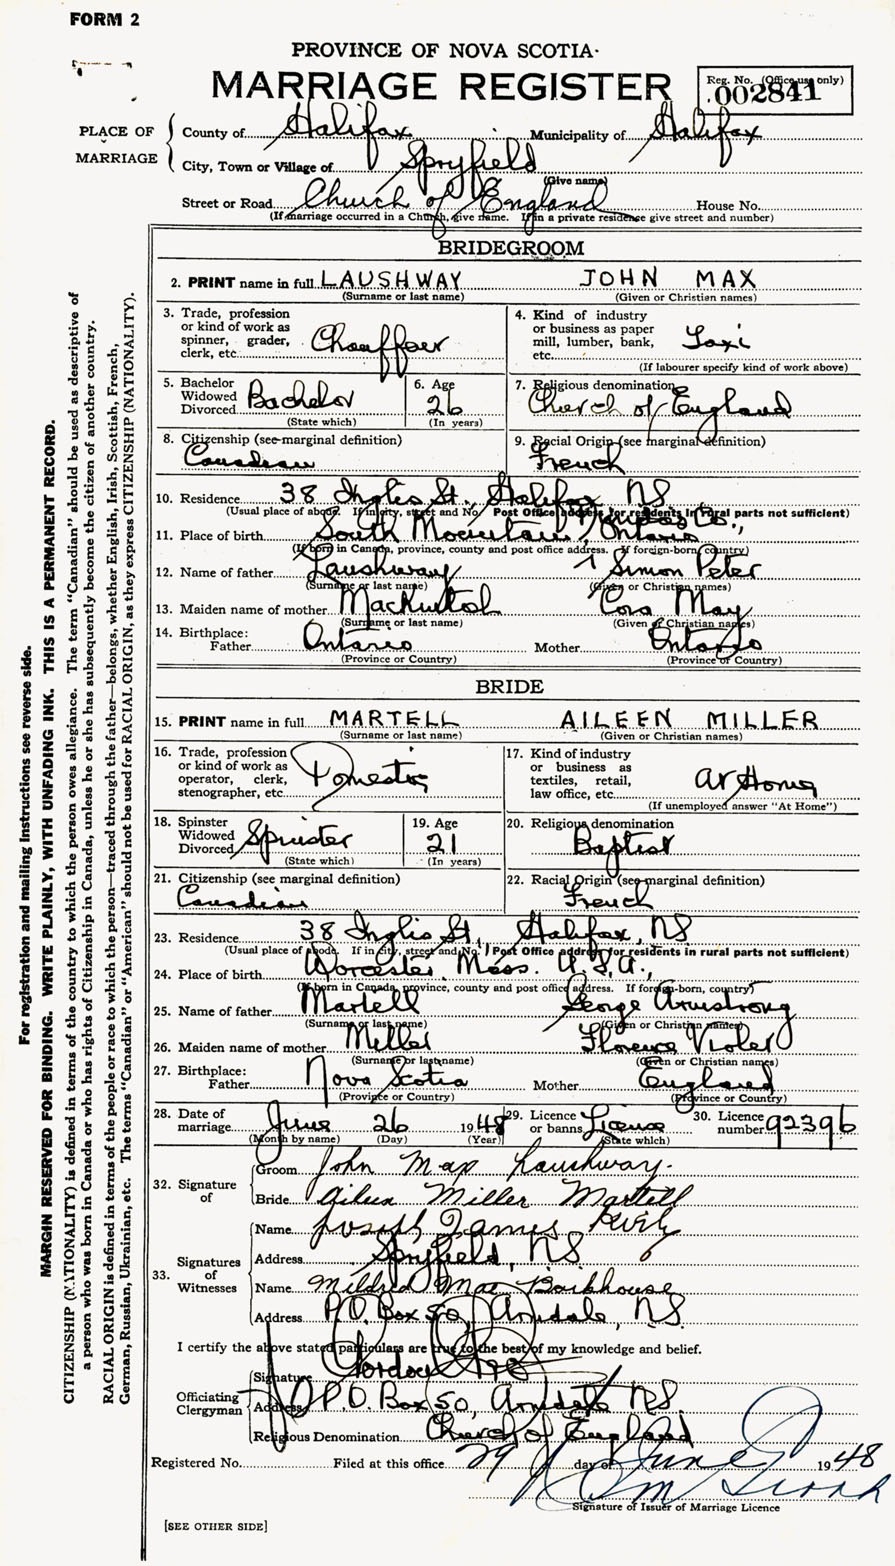 FORM 2
PROVINCE OF NOVA SCOTIA
MARRIAGE REGISTER
Reg. No. (Office use only)
002841
PLACE OF MARRIAGE
County of Halifax Municipality of Halifax
City, Town or Village of Spryfield
(Give name)
Street or Road Church of England House No.
(If marriage occurred in a Church, give name. If in a private residence give street and number)
BRIDEGROOM
2. PRINT name in full LAUSHWAY JOHN MAX
(Surname or last name) (Given or Christian names)
3. Trade, profession or kind of work as spinner, grader, clerk, etc. Chauffeur
4. Kind of industry or business as paper mill, lumber, bank, etc. Taxi
(If labourer specify kind of work above)
5. Bachelor Widowed Divorced Bachelor
(State which)
6. Age 26
(In years)
7. Religious denomination Church of England
8. Citizenship (see marginal definition) Canadian
9. Racial Origin (see marginal definition) French
10. Residence 38 Inglis St., Halifax, NS
(Usual place of abode. If in city, street and No. Post Office address for residents in rural parts not sufficient)
11. Place of birth South Mountain, Dundas Co., Ontario
(If born in Canada, province, county and post office address. If foreign-born, country)
12. Name of father Laushway Simon Peter
(Surname or last name) (Given or Christian names)
13. Maiden name of mother MacKintosh Cora May
(Surname or last name) (Given or Christian names)
14. Birthplace: Father Ontario Mother Ontario
(Province or Country) (Province or Country)
BRIDE
15. PRINT name in full MARTELL AILEEN MILLER
(Surname or last name) (Given or Christian names)
16. Trade, profession or kind of work as operator, clerk, stenographer, etc. Domestic
17. Kind of industry or business as textiles, retail, law office, etc. At Home
(If unemployed answer "At Home")
18. Spinster Widowed Divorced Spinster
(State which)
19. Age 21
(In years)
20. Religious denomination Baptist
21. Citizenship (see marginal definition) Canadian
22. Racial Origin (see marginal definition) French
23. Residence 38 Inglis St., Halifax, NS
(Usual place of abode. If in city, street and No. Post Office address for residents in rural parts not sufficient)
24. Place of birth Worcester, Mass. U.S.A.,
(If born in Canada, province, county and post office address. If foreign-born, country)
25. Name of father Martell George Armstrong
(Surname or last name) (Given or Christian names)
26. Maiden name of mother Miller Florence Violet
(Surname or last name) (Given or Christian names)
27. Birthplace: Father Nova Scotia Mother England
(Province or Country) (Province or Country)
28. Date of marriage June 26 1948
(Month by name) (Day) (Year)
29. Licence or banns License
(State which)
30. Licence number 92396
32. Signature of
Groom John Max Laushway.
Bride Aileen Miller Martell
33. Signatures of Witnesses
Name Joseph James
Address Spryfield, NS
Name Mildred Mae Barkhouse
Address P.O. Box 50, Armdale, NS
I certify the above stated particulars are true to the best of my knowledge and belief.
Officiating Clergyman
Signature Gordon
Address P.O. Box 50, Armdale NS.
Religious Denomination Church of England
Registered No. Filed at this office 29 day of June 1948
Signature of Issuer of Marriage Licence
[SEE OTHER SIDE]
For registration and mailing instructions see reverse side.
MARGIN RESERVED FOR BINDING. WRITE PLAINLY, WITH UNFADING INK. THIS IS A PERMANENT RECORD.
CITIZENSHIP (NATIONALITY) is defined in terms of the country to which the person owes allegiance. The term "Canadian" should be used as descriptive of
a person who was born in Canada or who has rights of Citizenship in Canada, unless he or she has subsequently become the citizen of another country.
RACIAL ORIGIN is defined in terms of the people or race to which the person—traced through the father—belongs, whether English, Irish, Scottish, French,
German, Russian, Ukrainian, etc. The terms "Canadian" or "American" should not be used for RACIAL ORIGIN, as they express CITIZENSHIP (NATIONALITY).